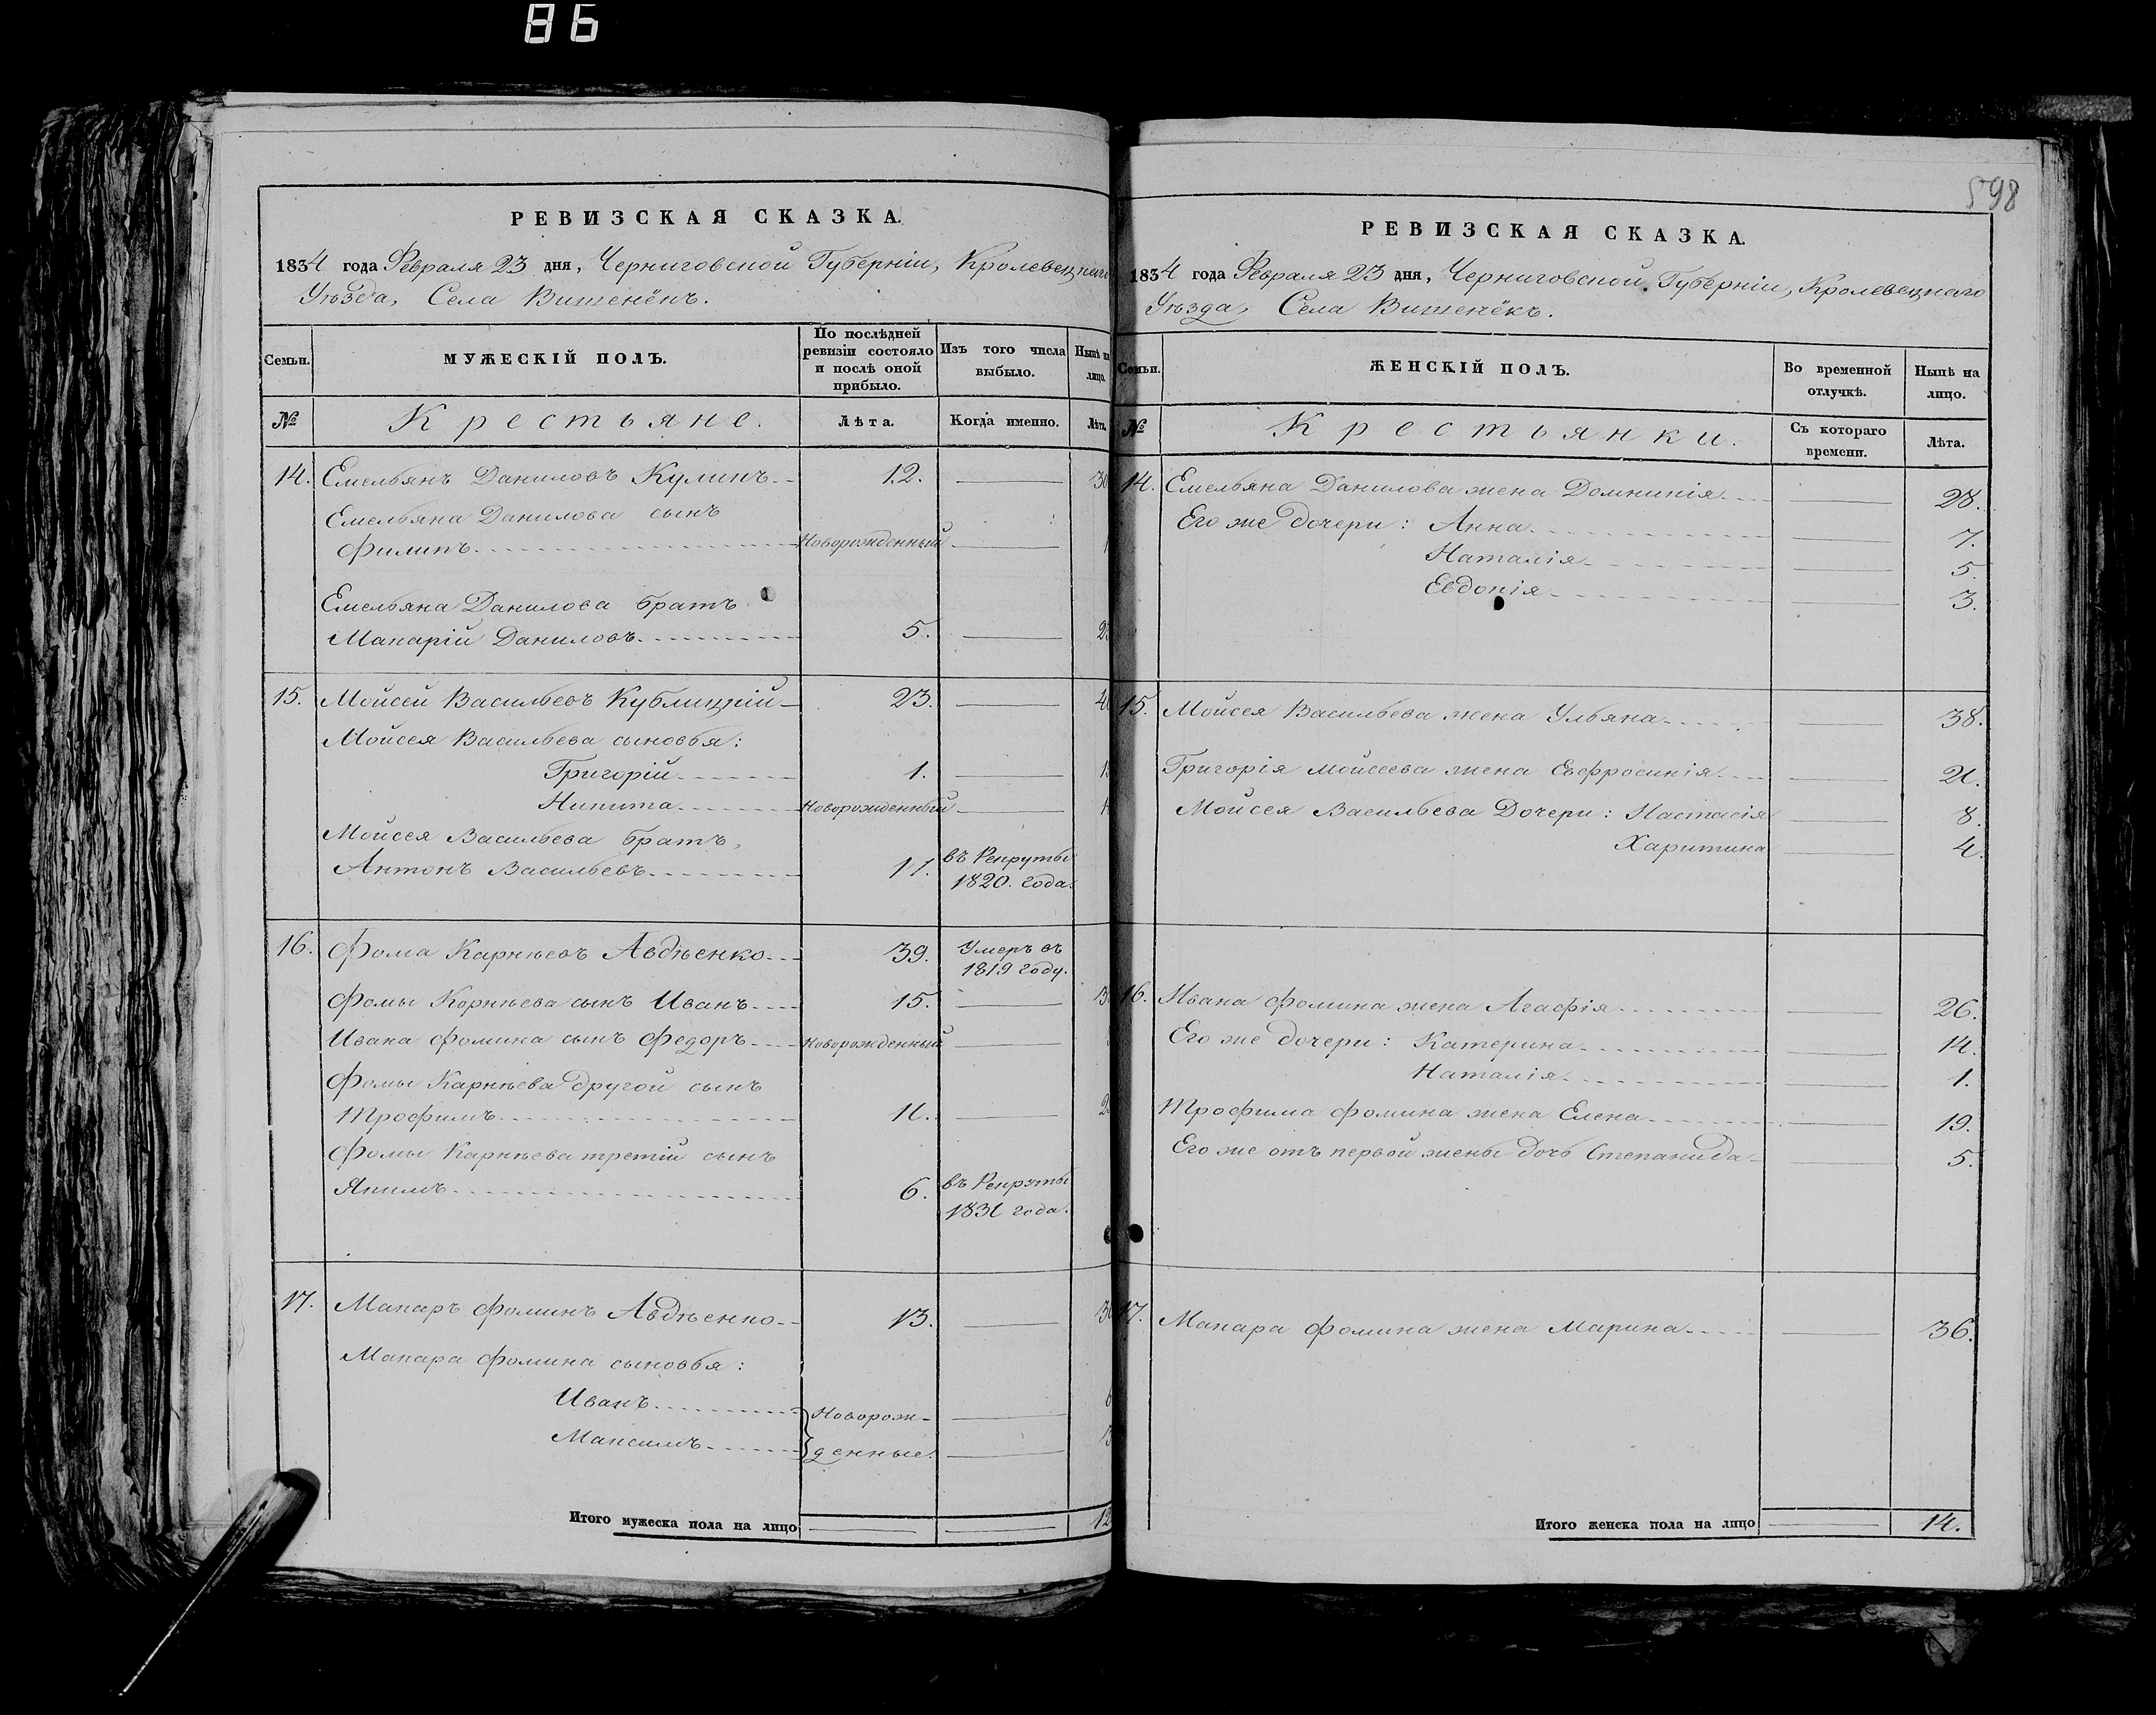 86
РЕВИЗСКАЯ СКАЗКА.
1834 года Февраля 23 дня, Черниговской Губерніи, Кролевецкаго
Уѣзда, Села Вишенёкъ.
Семьи.
МУЖЕСКІЙ ПОЛЪ.
По послѣдней ревизіи состояло и послѣ оной прибыло.
Изъ того числа выбыло.
Нынѣ на лицо.
№
Крестьяне.
Лѣта.
Когда именно.
Лѣта.
14. Емельянъ Даниловъ Куликъ 12. 30
Емельяна Данилова сынъ
Филипъ Новорожденный
Емельяна Данилова братъ
Макарій Даниловъ 5.
15. Мойсей Васильевъ Кублицкій 23.
Мойсея Васильева сыновья:
Григорій 1.
Никита Новорожденный
Мойсея Васильева братъ,
Антонъ Васильевъ 11. въ Рекруты
1820. года.
16. Фома Карнѣевъ Авдѣенко 39. Умеръ въ
1819 году.
Фомы Корнѣева сынъ Иванъ 15.
Ивана Фомина сынъ Федоръ Новорожденный
Фомы Карнѣева другой сынъ
Трофимъ 11.
Фомы Карнѣева третій сынъ
Якимъ 6. въ Рекруты
1831 года.
17. Макаръ Фоминъ Авдѣенко 13. 30
Макара Фомина сыновья:
Иванъ Новорож-
Максимъ денные.
Итого мужеска пола на лицо 12
598
РЕВИЗСКАЯ СКАЗКА.
1834 года Февраля 23 дня, Черниговской Губерніи, Кролевецкаго
Уѣзда, Села Вишенёкъ.
Семьи.
ЖЕНСКІЙ ПОЛЪ.
Во временной отлучкѣ.
Нынѣ на лицо.
№
Крестьянки.
Съ котораго времени.
Лѣта.
14. Емельяна Данилова жена Домникія 28.
Его же дочери: Анна 7.
Наталія 5.
Евдокія 3.
15. Мойсея Васильева жена Ульяна 38.
Григорія Мойсеева жена Евфросинія 21.
Мойсея Васильева Дочери: Настасія 8.
Харитина 4.
16. Ивана Фомина жена Агафія 26.
Его же дочери: Катерина 14.
Наталія 1.
Трофима Фомина жена Елена 19.
Его же отъ первой жены дочь Степанида 5.
17. Макара Фомина жена Марина 36.
Итого женска пола на лицо 14.